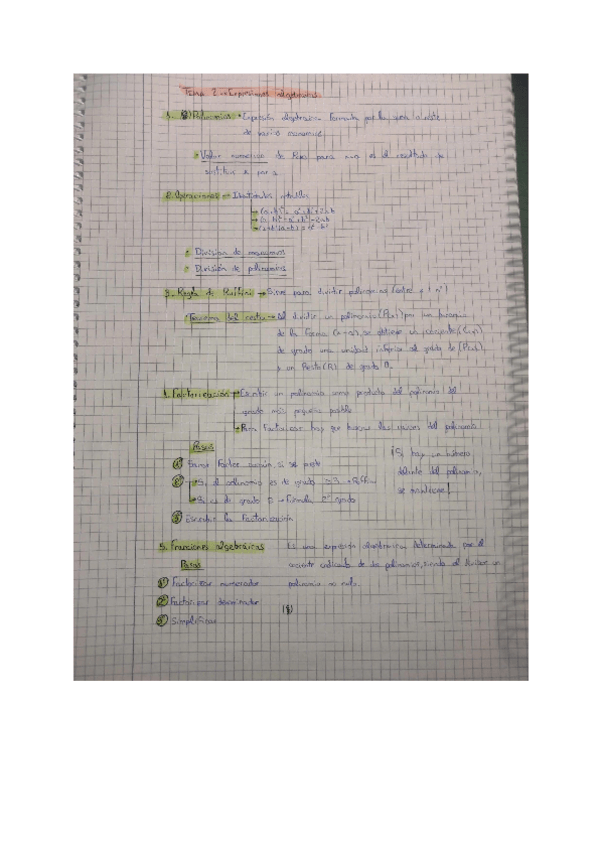 Tema 2 - Expresiones algebraicas
1. Polinomios • Expresión algebraica formada por la suma o resta
de varios monomios
• Valor numérico de P(x) para x=a es el resultado de
sustituir x por a
2. Operaciones - Identidades notables
→ (a+b)² = a²+b²+2ab
→ (a-b)² = a²+b²-2ab
→ (a+b)(a-b) = a²-b²
• División de monomios
• División de polinomios
3. Regla de Ruffini → Sirve para dividir polinomios (entre x ± nº)
• Teorema del resto → Al dividir un polinomio (P(x)) por un binomio
de la forma (x-a), se obtiene un cociente (C(x))
de grado una unidad inferior al grado de (P(x)),
y un Resto (R) de grado 0.
4. Factorización → Escribir un polinomio como producto del polinomio del
grado más pequeño posible
→ Para factorizar hay que buscar las raíces del polinomio
Pasos
1º Sacar Factor común si se puede
2º → Si el polinomio es de grado
→ Si es de grado 2 → Fórmula 2º grado
3º Escribir la factorización
¡Si hay un número
delante del polinomio,
se mantiene!
5. Fracciones algebraicas Es una expresión algebraica determinada por el
cociente indicado de dos polinomios, siendo el divisor un
polinomio no nulo.
Pasos
1º Factorizar numerador
2º Factorizar denominador
3º Simplificar